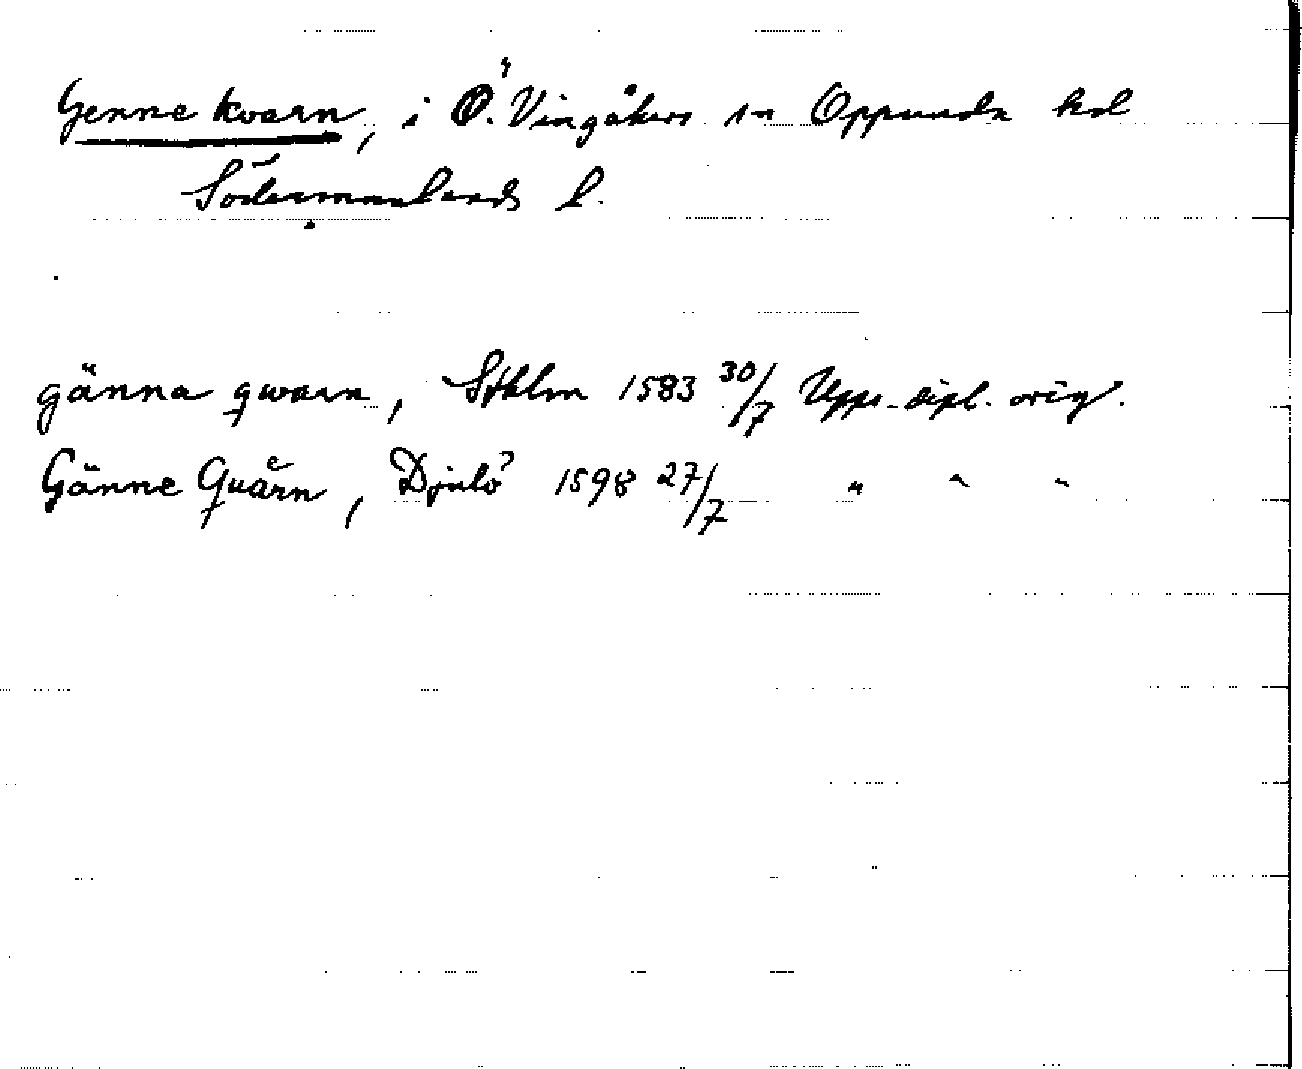 Genne kvarn, i Ö. Vingåkers sn Oppunda hd
Södermanlands l.
gänna qwarn, Sthlm 1583 30/7 Upps. dipl. orig.
Gänne Quårn, Djulö 1598 27/7 " " "